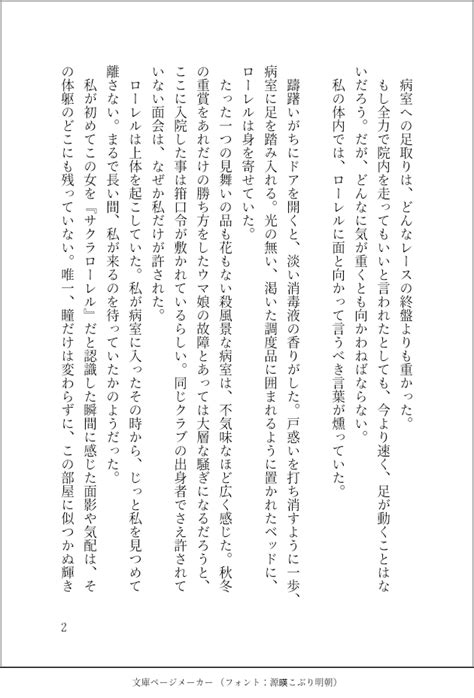 病室への足取りは、どんなレースの終盤よりも重かった。
もし全力で院内を走ってもいいと言われたとしても、今より速く、足が動くことはな
いだろう。だが、どんなに気が重くとも向かわねばならない。
私の体内では、ローレルに面と向かって言うべき言葉が燻っていた。
躊躇いがちにドアを開くと、淡い消毒液の香りがした。戸惑いを打ち消すように一歩、
病室に足を踏み入れる。光の無い、渇いた調度品に囲まれるように置かれたベッドに、
ローレルは身を寄せていた。
たった一つの見舞いの品も花もない殺風景な病室は、不気味なほど広く感じた。秋冬
の重賞をあれだけの勝ち方をしたウマ娘の故障とあっては大層な騒ぎになるだろうと、
ここに入院した事は箝口令が敷かれているらしい。同じクラブの出身者でさえ許されて
いない面会は、なぜか私だけが許された。
ローレルは上体を起こしていた。私が病室に入ったその時から、じっと私を見つめて
離さない。まるで長い間、私が来るのを待っていたかのようだった。
私が初めてこの女を『サクラローレル』だと認識した瞬間に感じた面影や気配は、そ
の体躯のどこにも残っていない。唯一、瞳だけは変わらずに、この部屋に似つかぬ輝き
2
文庫ページメーカー（フォント：源暎こぶり明朝）